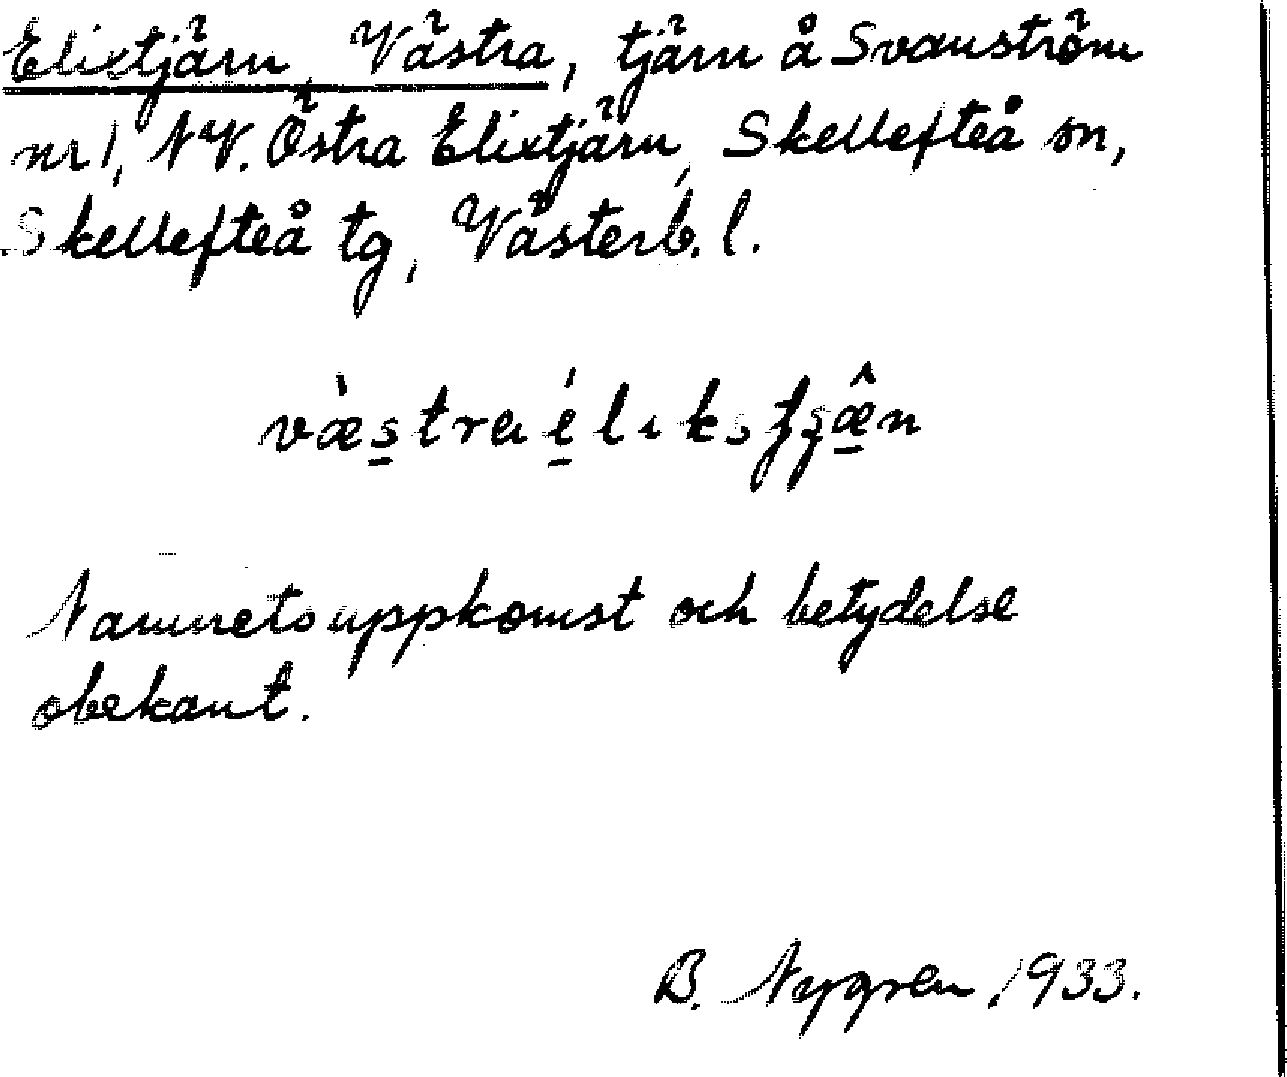 Elixtjärn, Västra, tjärn å Svanström
nr 1, NV. Östra Elixtjärn, Skellefteå sn,
Skellefteå tg, Västerb. l.
væ̀stra éliksʈʂæ̂n
Namnets uppkomst och betydelse
obekant.
B. Nygren 1933.